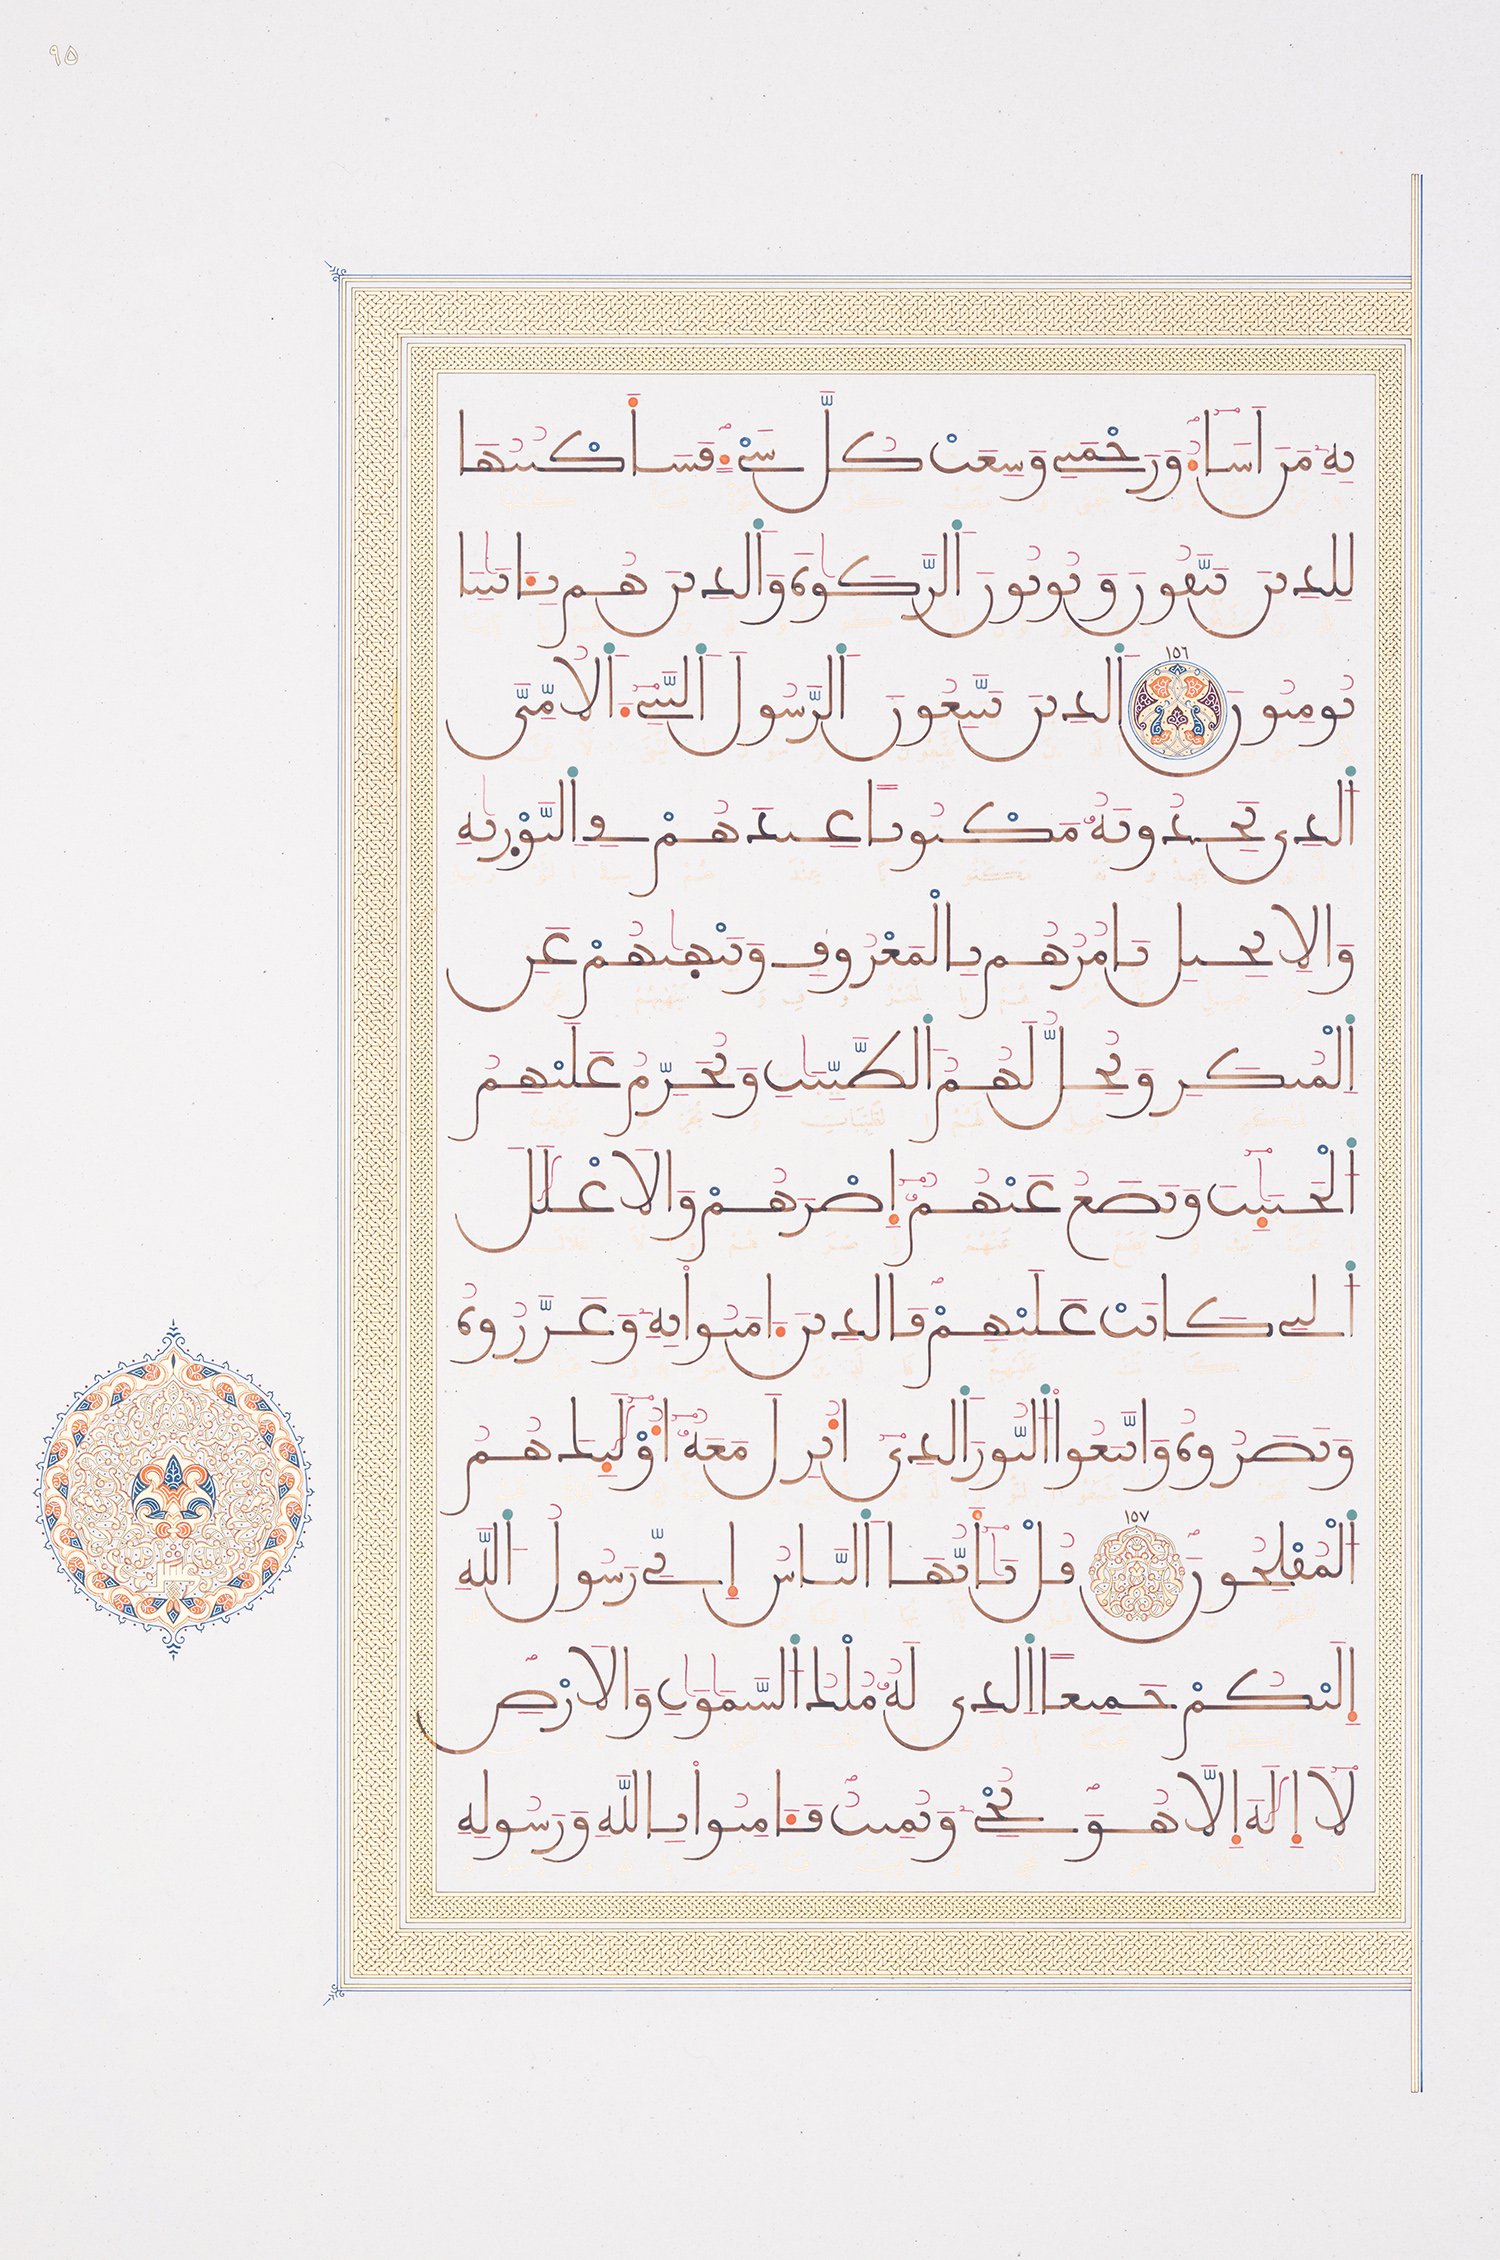 ٩٥
بِهِۦ مَنَ اَشَآءُ وَرَحْمَتِي وَسِعَتْ كُلَّ شَيْءٍ فَسَأَكْتُبُهَا
لِلذِينَ يَتَّقُونَ وَيُوتُونَ اَلزَّكَوٰةَ وَالذِينَ هُم بِـَٔايَٰتِنَا
يُومِنُونَ ١٥٦ اَلذِينَ يَتَّبِعُونَ اَلرَّسُولَ اَلنَّبِيٓءَ اَلُامِّيَّ
اَلذِي يَجِدُونَهُۥ مَكْتُوباً عِندَهُمْ فِي اِلتَّوْرَيٰةِ
وَالِانجِيلِ يَامُرُهُم بِالْمَعْرُوفِ وَيَنْهَيٰهُمْ عَنِ
اِلْمُنكَرِ وَيُحِلُّ لَهُمُ اُلطَّيِّبَٰتِ وَيُحَرِّمُ عَلَيْهِمُ
اُلْخَبَٰٓئِثَ وَيَضَعُ عَنْهُمُۥٓ إِصْرَهُمْ وَالَاغْلَٰلَ
اَلتِي كَانَتْ عَلَيْهِمْ فَالذِينَ ءَامَنُوا بِهِۦ وَعَزَّرُوهُ
وَنَصَرُوهُ وَاتَّبَعُوا اُلنُّورَ اَلذِيٓ أُنزِلَ مَعَهُۥٓ أُوْلَٰٓئِكَ هُمُ
اُلْمُفْلِحُونَ ١٥٧ قُلْ يَٰٓأَيُّهَا اَلنَّاسُ إِنِّي رَسُولُ اُللَّهِ
إِلَيْكُمْ جَمِيعاً اِلذِي لَهُۥ مُلْكُ اُلسَّمَٰوَٰتِ وَالَارْضِ
لَآ إِلَٰهَ إِلَّا هُوَ يُحْيِۦ وَيُمِيتُ فَـَٔامِنُوا بِاللَّهِ وَرَسُولِهِ
عشر